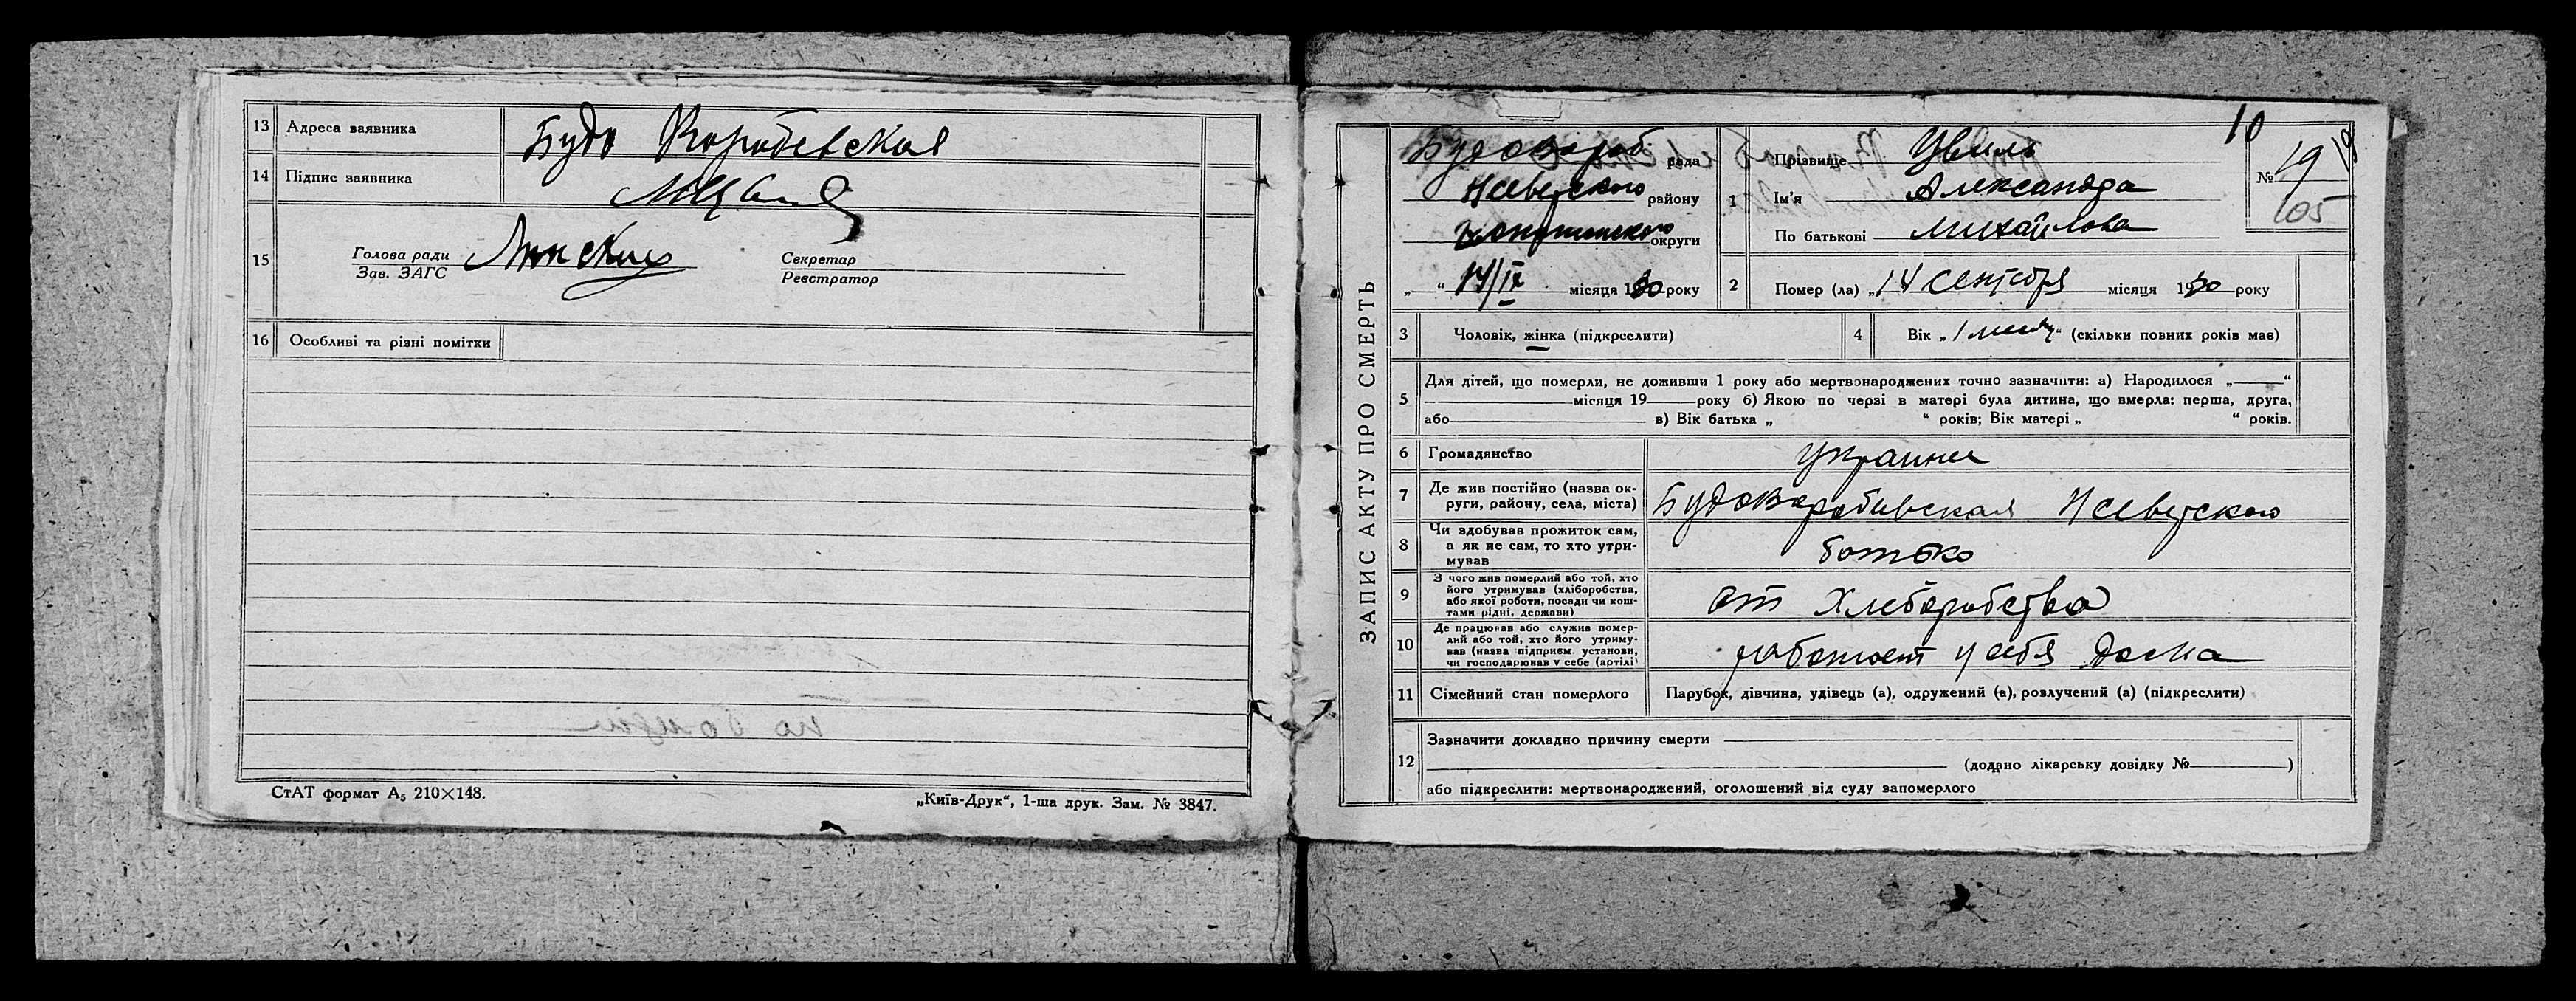 13 Адреса заявника Будо Воробевская
14 Підпис заявника
15 Голова ради
Зав. ЗАГС
Секретар
Реєстратор
16 Особливі та різні помітки
СтАТ формат А5 210×148.
„Київ-Друк“, 1-ша друк. Зам. № 3847.
ЗАПИС АКТУ ПРО СМЕРТЬ
Будовороб. рада
району
округи
„ “ 14/IX місяця 1930 року
10
1 Прізвище Цвиль
Ім'я Александра
По батькові Михайлова
№ 19
105
2 Помер (ла) „14 сентебря місяця 1930 року
3 Чоловік, жінка (підкреслити)
4 Вік „ 1 “ (скільки повних років має)
5 Для дітей, що померли, не доживши 1 року або мертвонароджених точно зазначити: а) Народилося „ “
місяця 19 року б) Якою по черзі в матері була дитина, що вмерла: перша, друга,
або в) Вік батька „ “ років; Вік матері „ “ років.
6 Громадянство
7 Де жив постійно (назва округи, району, села, міста)
8 Чи здобував прожиток сам,
а як не сам, то хто утри-
мував батько
9 З чого жив померлий або той, хто
його утримував (хліборобства,
або якої роботи, посади чи кош-
тами рідні, держави) от Хлеборобства
10 Де працював або служив помер-
лий або той, хто його утриму-
вав (назва підприєм. установи,
чи господарював у себе (артілі) работает у себя дома
11 Сімейний стан померлого Парубок, дівчина, удівець (а), одружений (а), розлучений (а) (підкреслити)
12 Зазначити докладно причину смерти
(додано лікарську довідку № )
або підкреслити: мертвонароджений, оголошений від суду запомерлого